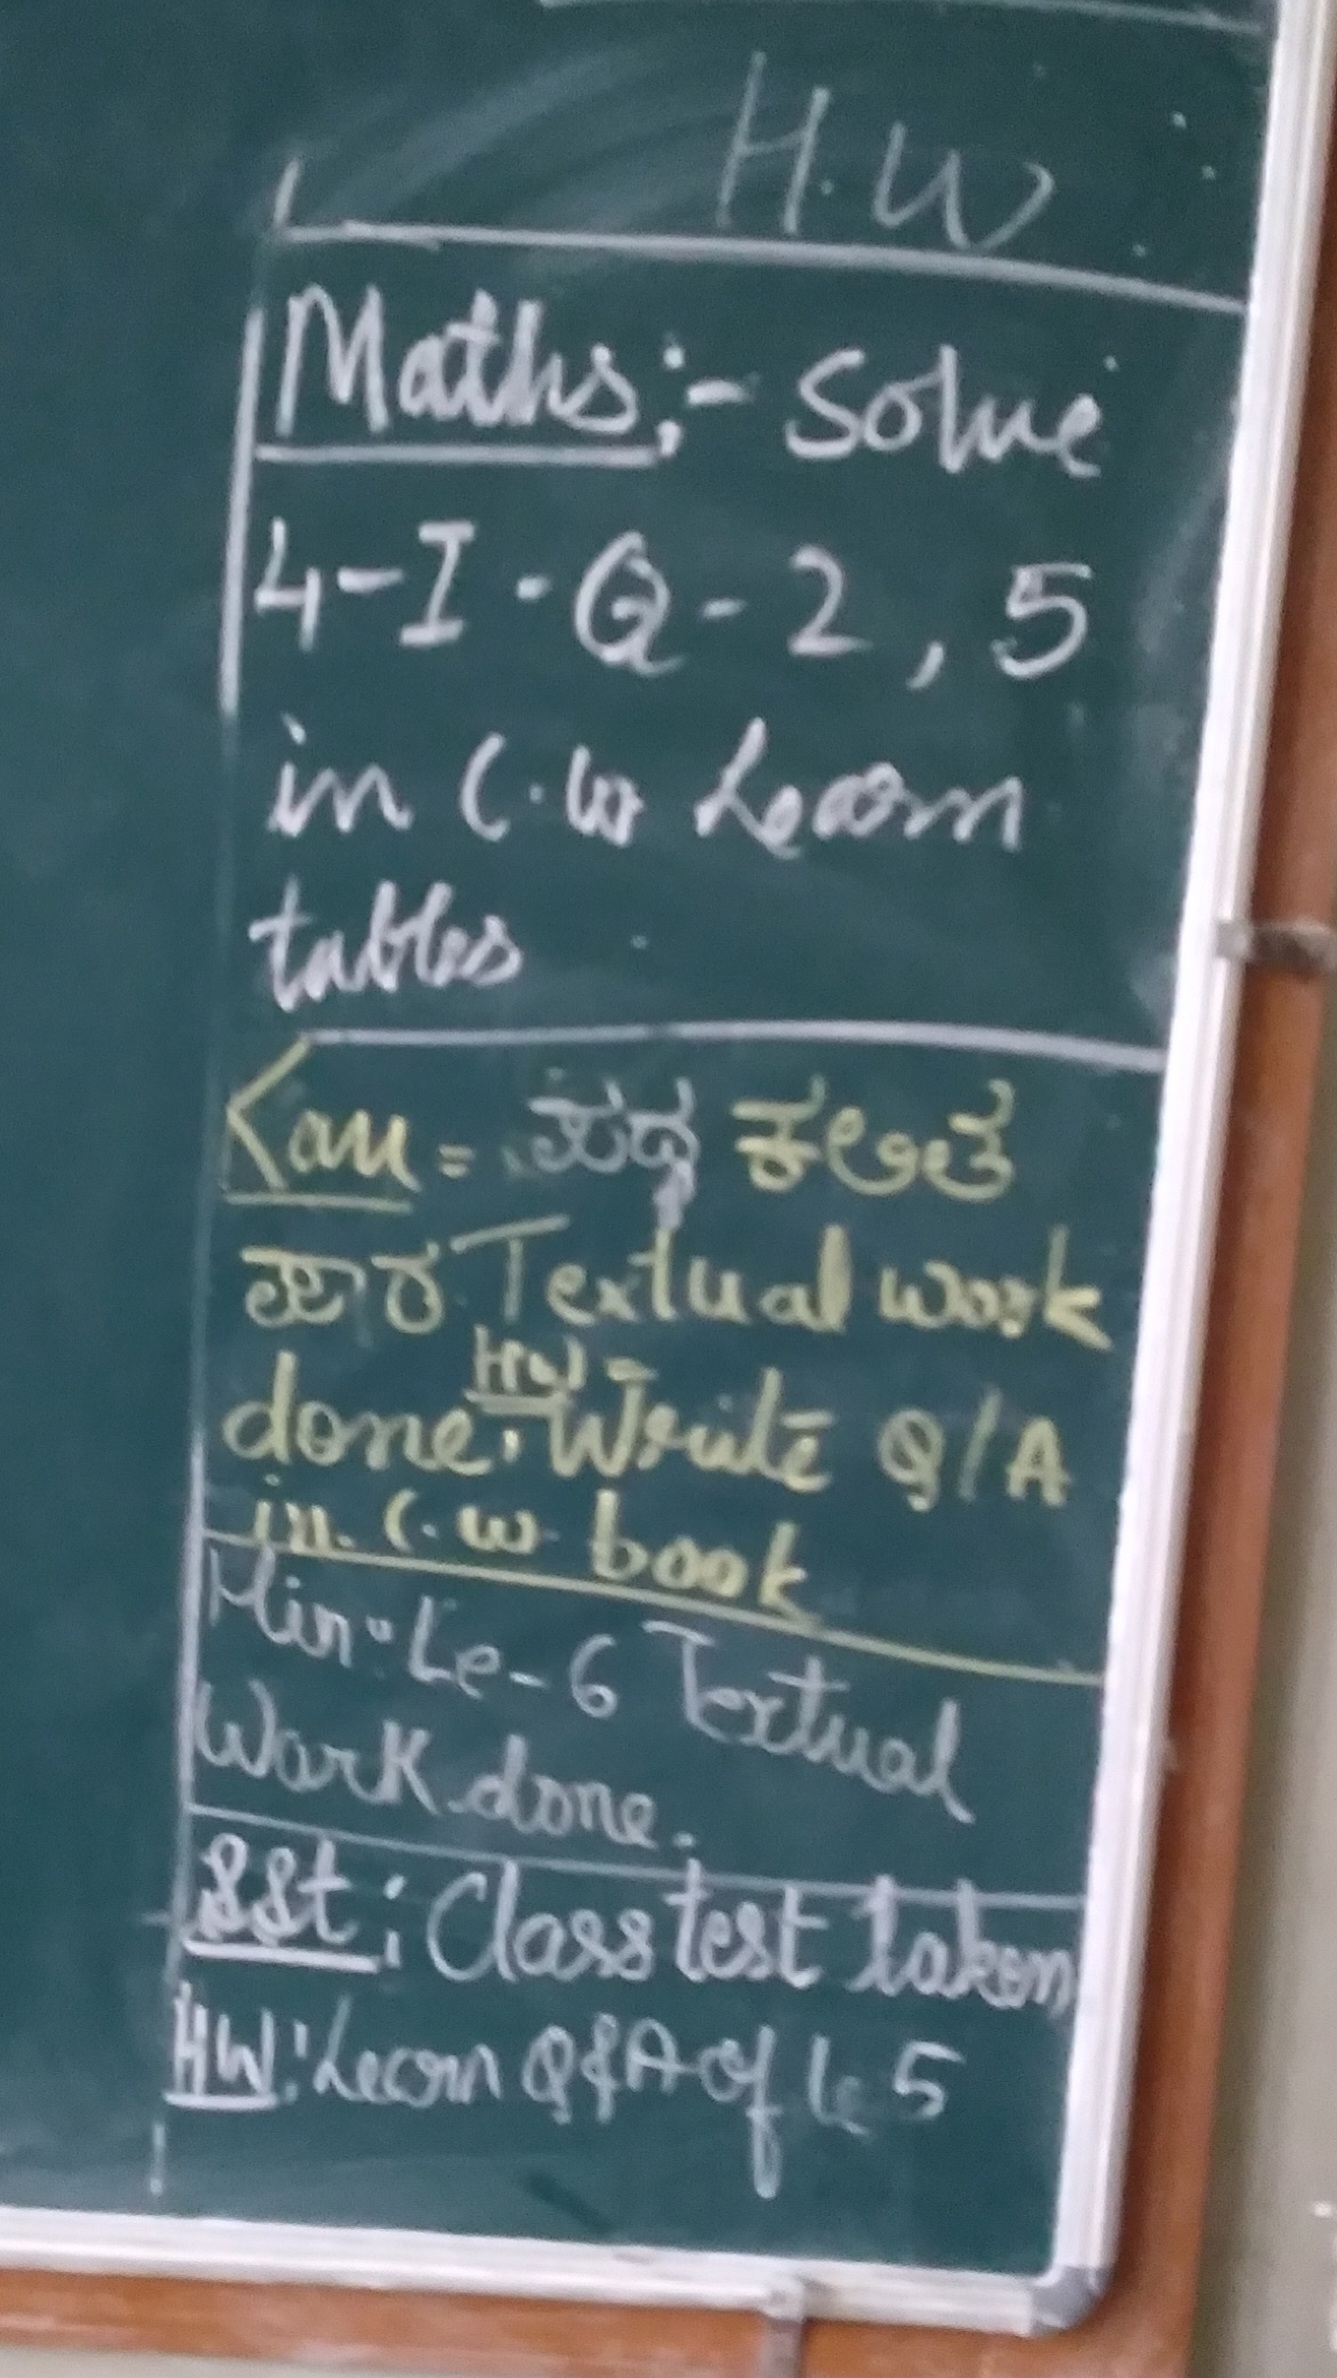 H.W
Maths:- Solve
4-I-Q-2, 5
in C.W Learn
tables
Kan = ಪದ್ಯ ಕಲಿತ
ಪಾಠ Textual work
done. HW = Write Q/A
in C.W book
Hin - Le-6 Textual
Work done.
SSt: Class test taken
HW: Learn Q&A of Le 5